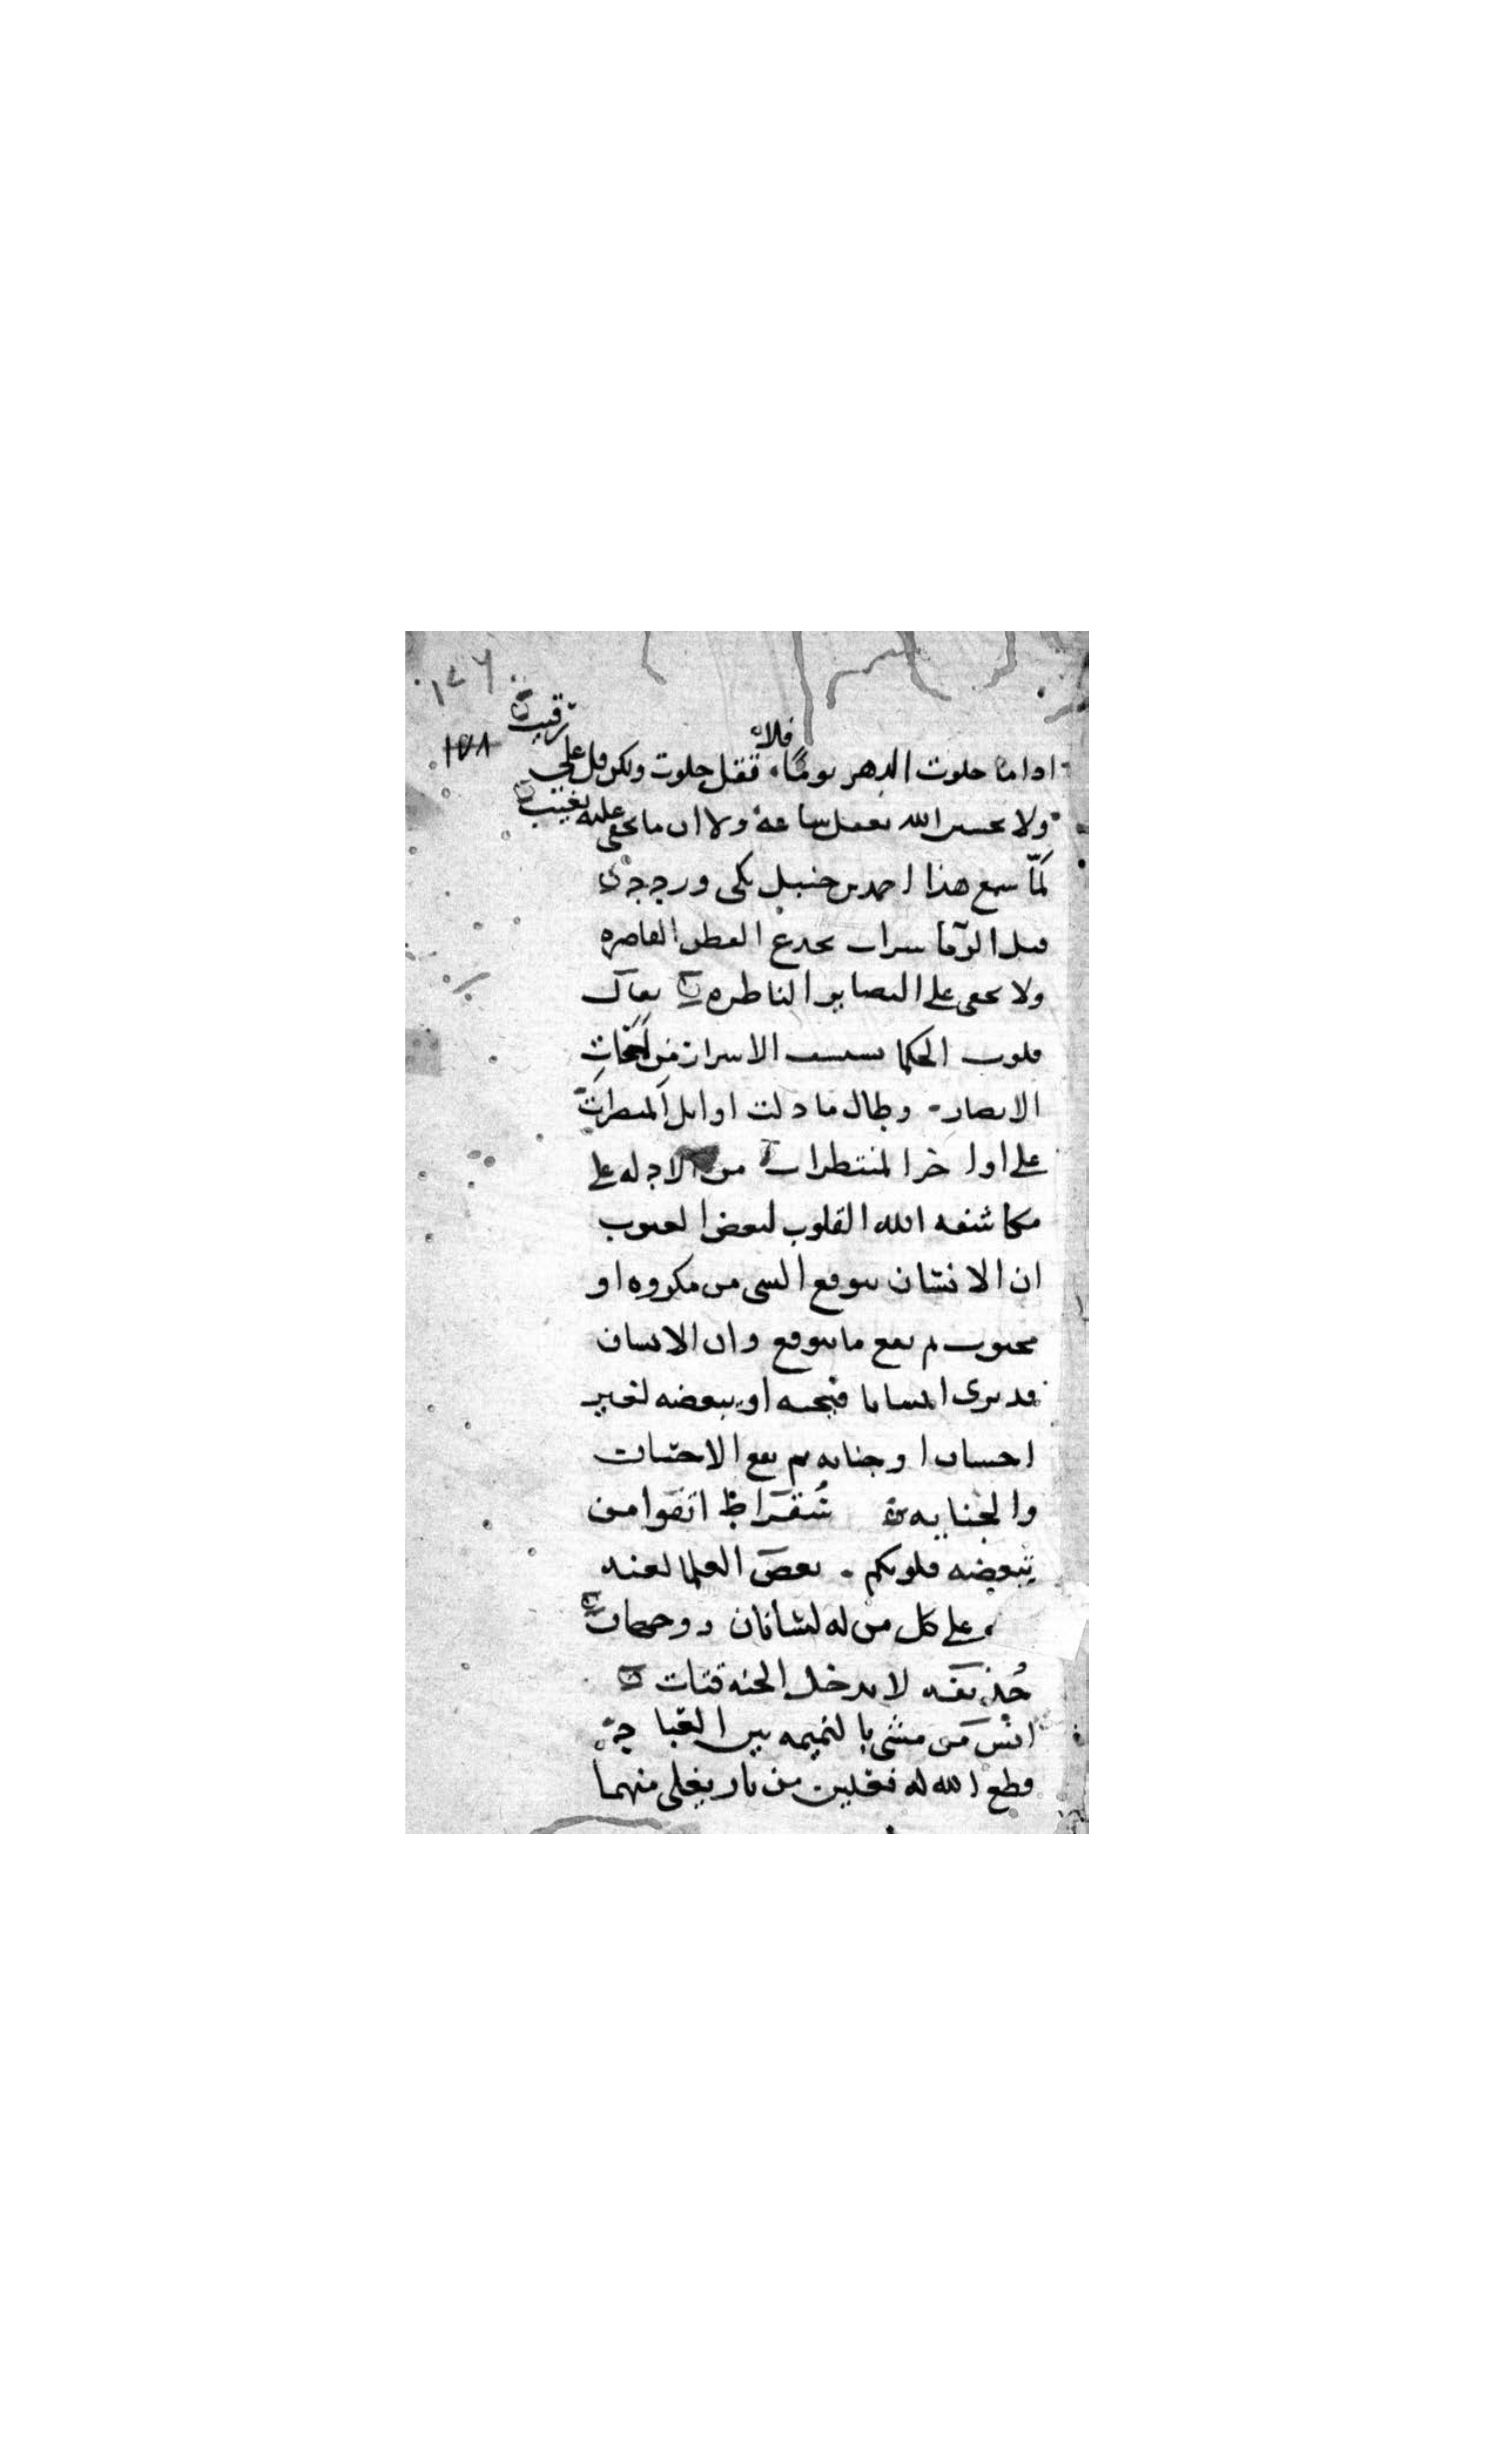 ١٧٦
١٧٨
اذا ما خلوت الدهر يوما فلا تقل خلوت ولكن قل علي رقيب
ولا تحسبن الله يغفل ساعة ولا ان ما يخفى عليه يغيب
لمّا سمع هذا احمد بن حنبل بكى وردده
قيل الريا سراب يخدع الفطن القاصره
ولا يخفى على البصاير الناظره يقال
قلوب الحكما تستشف الاسرار من لمحات
الابصار وطال ما دلت اوايل المنظرات
على اواخر المنتظرات من الادله على
مكاشفه الله القلوب لبعض الغيوب
ان الانسان يتوقع الشي من مكروه او
محبوب ثم يقع ما يتوقع وان الانسان
قد يرى انسانا فيحبه او يبغضه لغير
احسان او جنايه ثم يقع الاحسان
والجنايه سُقراط اتقوا من
تبغضه قلوبكم بعض العلما لعنه
على كل من له لسانان ووجهان
حُذيفه لا يدخل الجنه قتات
انس من مشى بالنميمه بين العباد
قطع الله له نعلين من نار يغلى منهما